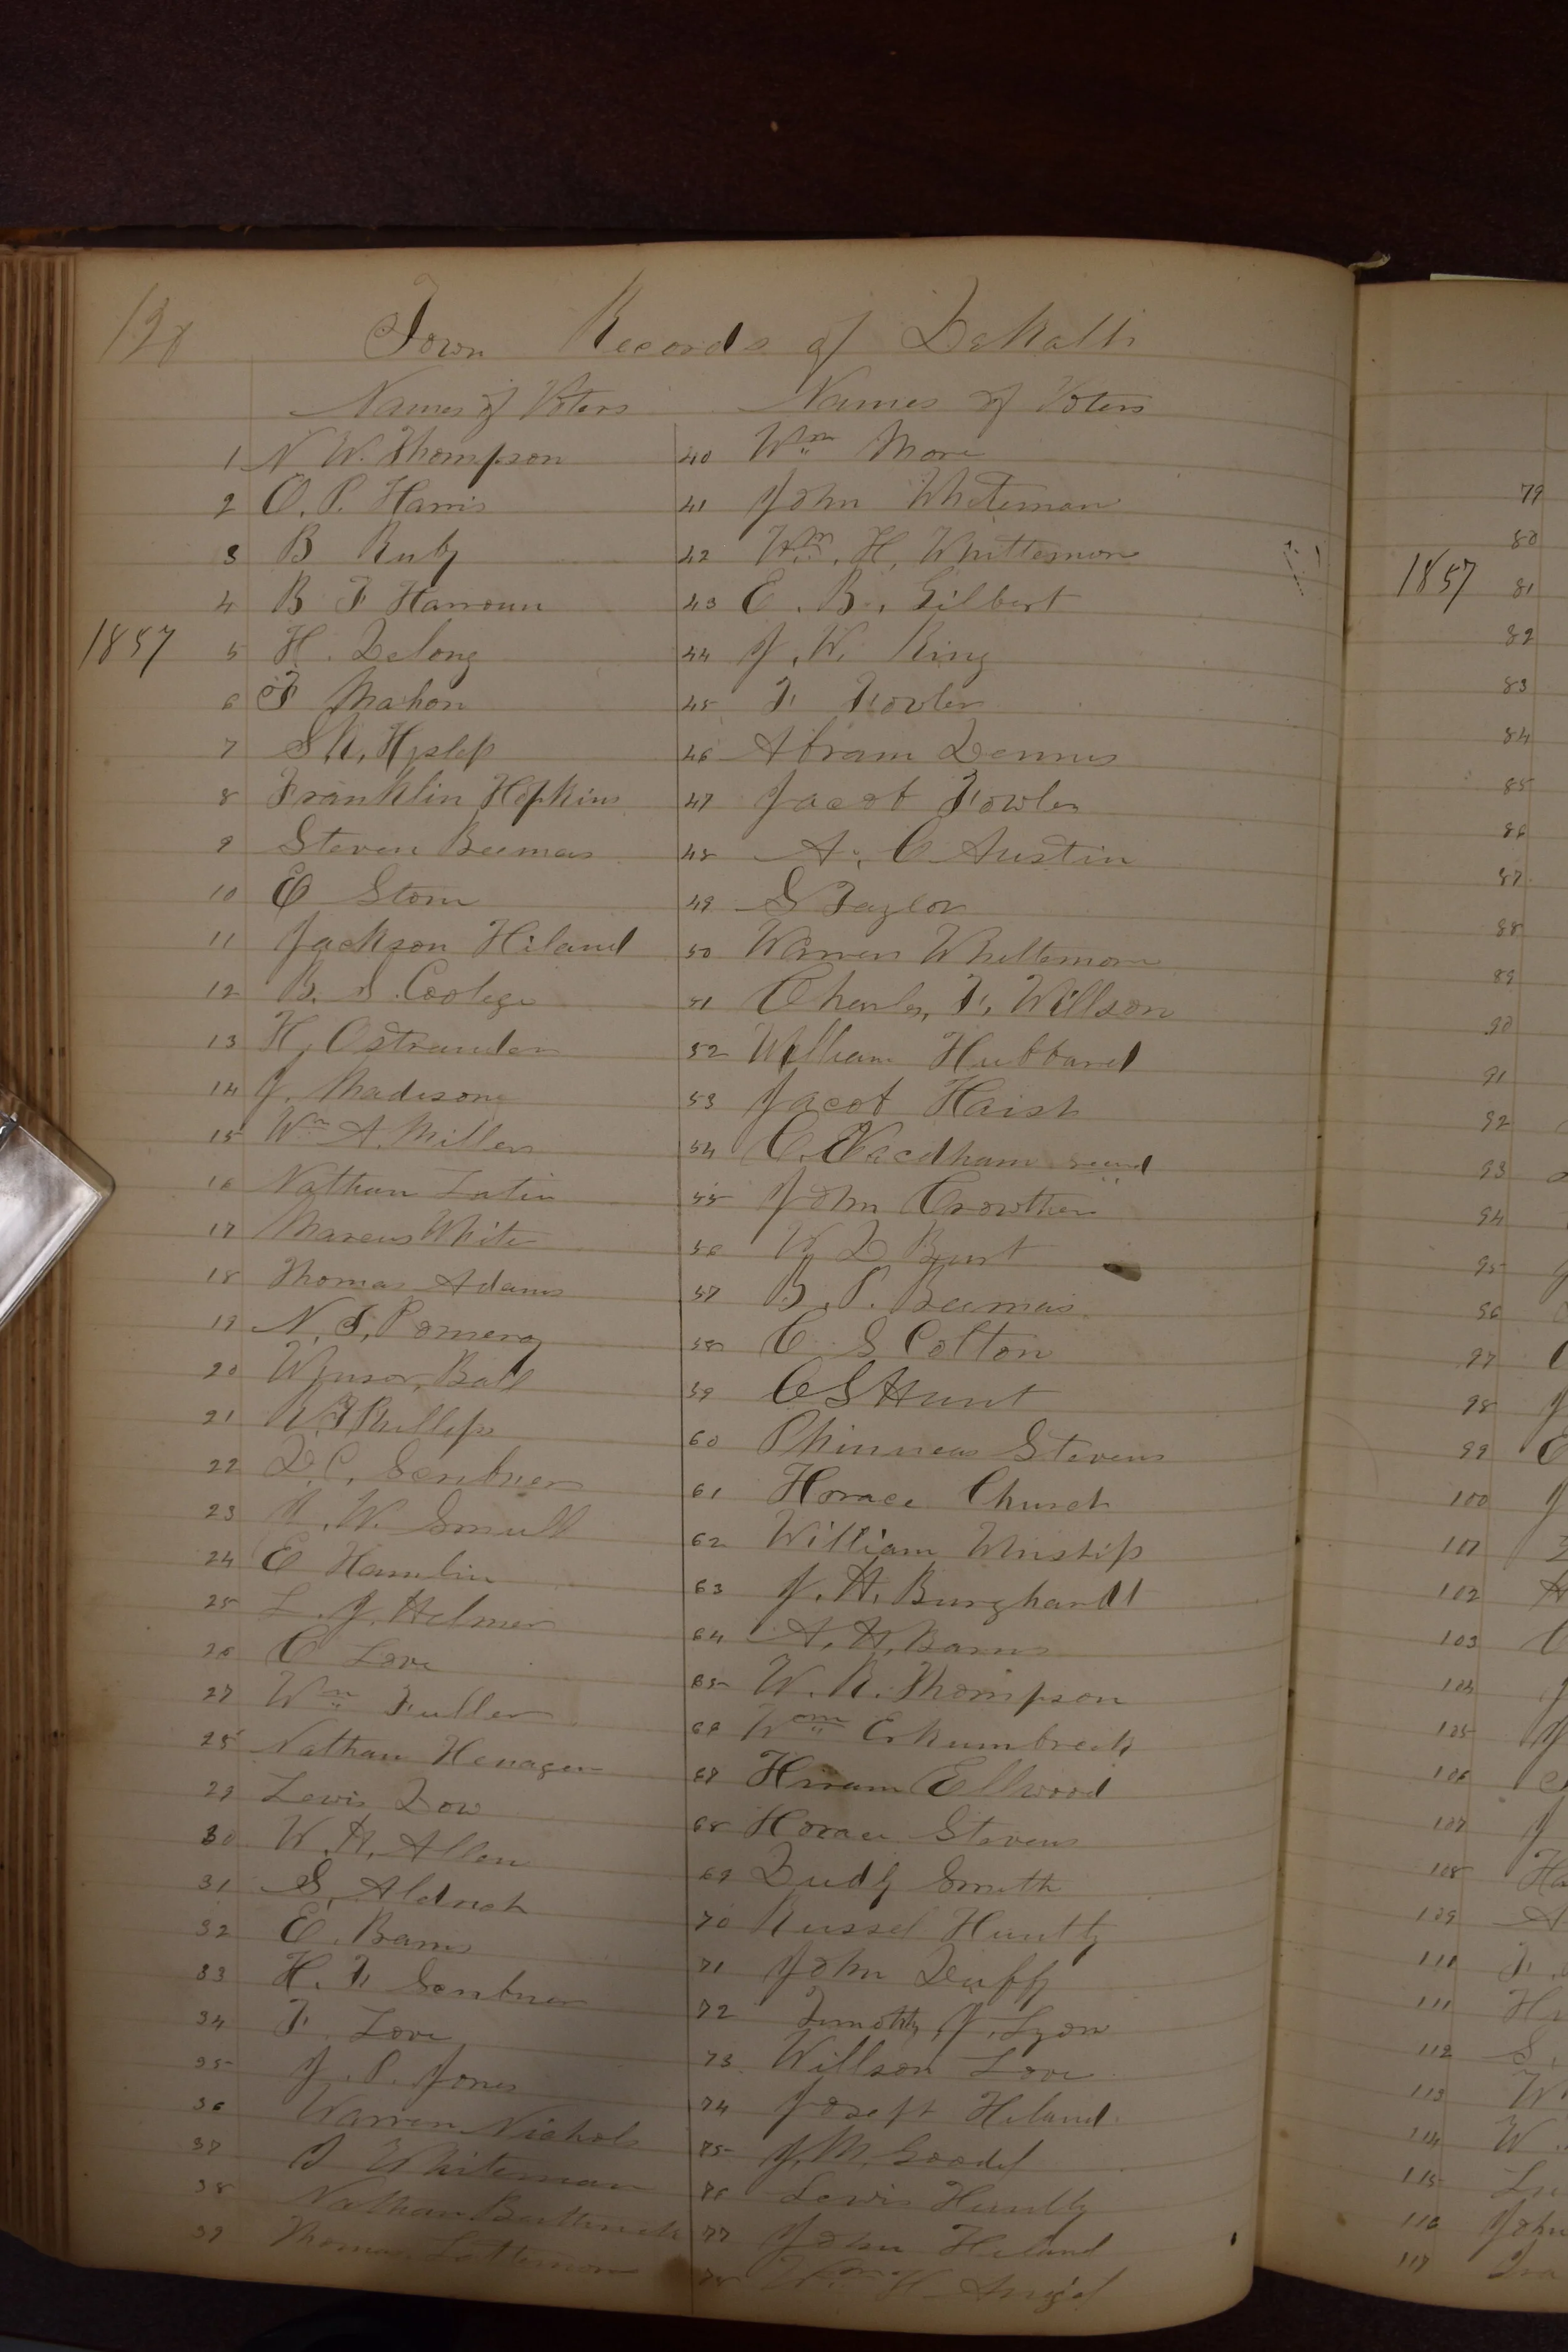 Town Records of DeKalb
Names of Voters
1 N W. Thompson
2 O. P. Harris
3 B Ruby
4 B F Harroun
1857
5 H. Delong
6 F Mahon
7 S. N. Hyslop
8 Franklin Hopkins
9 Steven Beemas
10 E Storm
11 Jackson Hiland
12 B. S. Coolege
13 H, Ostrander
14 J. Madisone
15 Wm A. Miller
16 Nathan Latin
17 Marcus White
18 Thomas Adams
19 N. S. Pomeroy
20 Wynsor, Ball
21 Phillips
22 D. C. Scribner
23 W. Small
24 E Hamlin
25 L. J. Helmer
26 C Love
27 Wm Fuller
28 Nathan Henager
29 Lewis Dow
30 W. H. Allen
31 S, Aldrich
32 E. Barns
33 H. F. Scribner
34 F. Love
35 J. P. Jones
36 Warren Nichols
37 Whiteman
38 Nathan
39 Thomas
Names of Voters
40 Wm More
41 John Whiteman
42 Wm. H. Whittemore
43 E. B. Gilbert
44 J. W. King
45 F. Fowler
46 Abram Dennis
47 Jacob Fowler
48 A. C Austin
49 S Taylor
50 Warren Whittemore
51 Charles, F. Willson
52 William Hubbard
53 Jacob Haish
54 C.
55 John Crowther
56 Burt
57 B. P. Beemas
58 C. S Colton
59 C S Hunt
60 Phinneas Stevens
61 Horace Church
62 William Winship
63 J. H. Burghardt
64 A. H. Barns
65 W. R. Thompson
66 Wm
67 Hiram Ellwood
68 Horace Stevens
69 Dudly Smith
70 Russel Huntly
71 John Duffy
72 Timothy J. Lyon
73 Willson Love
74 Joseph Hiland
75 J. M. Goodel
76 Lewis Huntly
77 John Hiland
78 Wm H
79
80
1857 81
82
83
84
85
86
87
88
89
90
91
92
93
94
95
96
97
98
99
100
101
102
103
104
105
106
107
108
109
110
111
112
113
114
115
116 John
117